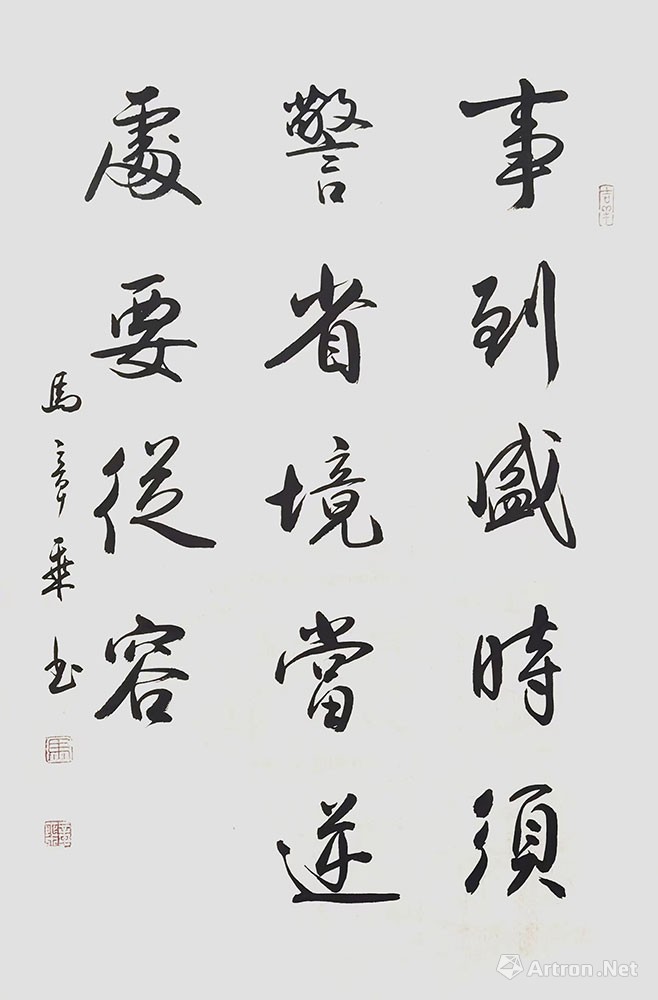 事到盛時須
警省境當逆
處要從容
馬章乘书
Artron.Net